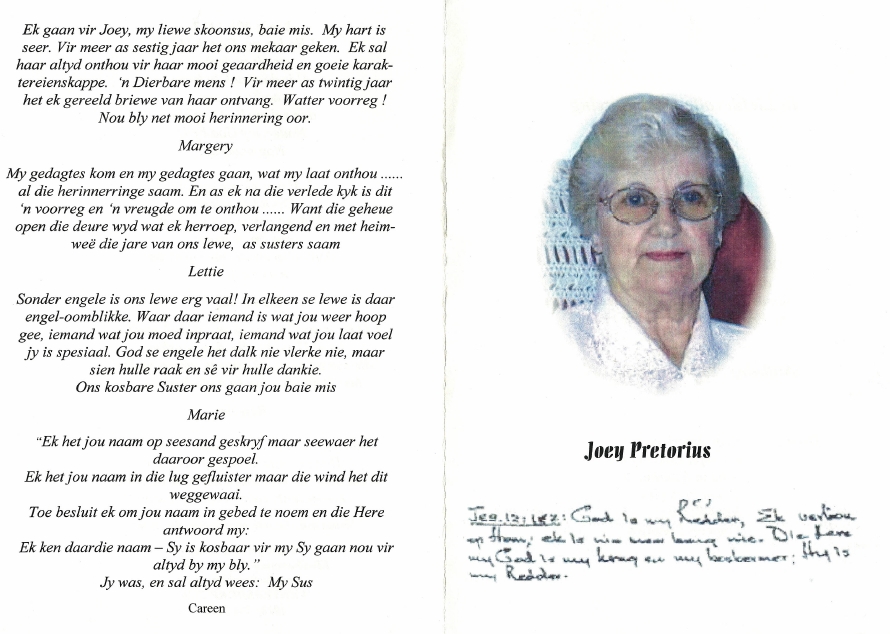 Ek gaan vir Joey, my liewe skoonsus, baie mis.  My hart is
seer. Vir meer as sestig jaar het ons mekaar geken.  Ek sal
haar altyd onthou vir haar mooi geaardheid en goeie karak-
tereienskappe.  ‘n Dierbare mens !  Vir meer as twintig jaar
het ek gereeld briewe van haar ontvang.  Watter voorreg !
Nou bly net mooi herinnering oor.
Margery
My gedagtes kom en my gedagtes gaan, wat my laat onthou ......
al die herinnerringe saam. En as ek na die verlede kyk is dit
‘n voorreg en ‘n vreugde om te onthou ...... Want die geheue
open die deure wyd wat ek herroep, verlangend en met heim-
weë die jare van ons lewe,  as susters saam
Lettie
Sonder engele is ons lewe erg vaal! In elkeen se lewe is daar
engel-oomblikke. Waar daar iemand is wat jou weer hoop
gee, iemand wat jou moed inpraat, iemand wat jou laat voel
jy is spesiaal. God se engele het dalk nie vlerke nie, maar
sien hulle raak en sê vir hulle dankie.
Ons kosbare Suster ons gaan jou baie mis
Marie
“Ek het jou naam op seesand geskryf maar seewaer het
daaroor gespoel.
Ek het jou naam in die lug gefluister maar die wind het dit
weggewaai.
Toe besluit ek om jou naam in gebed te noem en die Here
antwoord my:
Ek ken daardie naam – Sy is kosbaar vir my Sy gaan nou vir
altyd by my bly.”
Jy was, en sal altyd wees:  My Sus
Careen
Joey Pretorius
Jes.12:1&2: God is my Redder, Ek vertrou
op Hom; ek is nie meer bang nie. Die Here
my God is my krag en my beskermer; Hy is
my Redder.